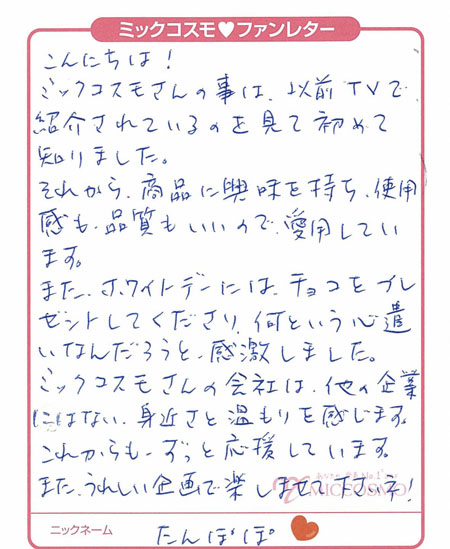 ミックコスモ♥ファンレター
こんにちは!
ミックコスモさんの事は、以前TVで
紹介されているのを見て初めて
知りました。
それから、商品に興味を持ち、使用
感も、品質もいいので、愛用してい
ます。
また、ホワイトデーには、チョコをプレ
ゼントしてくださり、何という心遣
いなんだろうと、感激しました。
ミックコスモさんの会社は、他の企業
にはない、身近さと温もりを感じます。
これからも、ずっと応援しています。
また、うれしい企画で楽しませて下さいネ!
MICCOSMO
ニックネーム たんぽぽ